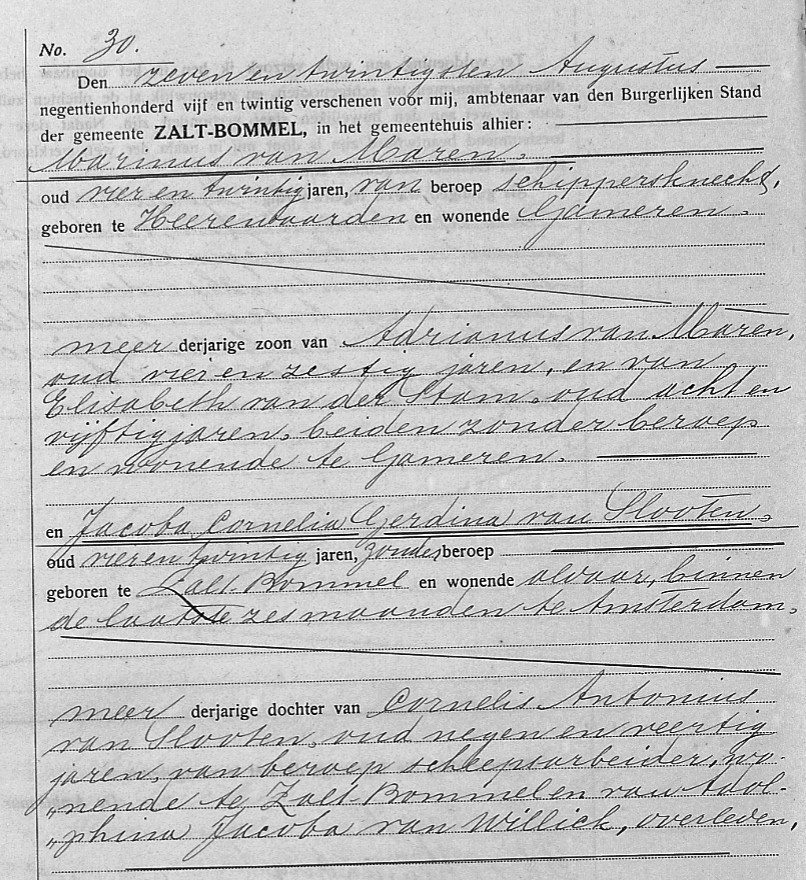 No. 30.
Den zeven en twintigsten Augustus
negentienhonderd vijf en twintig verschenen voor mij, ambtenaar van den Burgerlijken Stand
der gemeente ZALT-BOMMEL, in het gemeentehuis alhier:
Marinus van Maren.
oud vier en twintig jaren, van beroep schippersknecht,
geboren te Heerewaarden en wonende Gameren.
meer derjarige zoon van Adrianus van Maren,
oud vier en zestig jaren, en van
Elisabeth van der Stam, oud acht en
vijftig jaren, beiden zonder beroep
en wonende te Gameren.
en Jacoba Cornelia Gerdina van Slooten,
oud vier en twintig jaren, zonder beroep
geboren te Zalt-Bommel en wonende aldaar, binnen
de laatste zes maanden te Amsterdam,
meer derjarige dochter van Cornelis Antonius
van Slooten, oud negen en veertig
jaren, van beroep scheepsarbeider, wo-
„nende te Zalt-Bommel en van Adol-
„phina Jacoba van Willick, overleden,